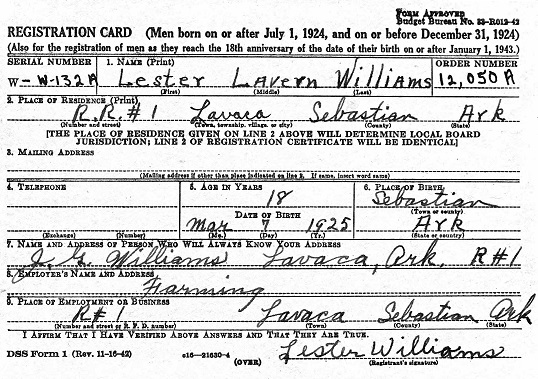 FORM APPROVED
Budget Bureau No. 33-R012-42
REGISTRATION CARD (Men born on or after July 1, 1924, and on or before December 31, 1924)
(Also for the registration of men as they reach the 18th anniversary of the date of their birth on or after January 1, 1943.)
SERIAL NUMBER 1. NAME (Print) ORDER NUMBER
W-W-132A Lester Lavern Williams 12,050 A
(First) (Middle) (Last)
2. PLACE OF RESIDENCE (Print)
R.R.#1 Lavaca Sebastian Ark
(Number and street) (Town, township, village, or city) (County) (State)
[THE PLACE OF RESIDENCE GIVEN ON LINE 2 ABOVE WILL DETERMINE LOCAL BOARD
JURISDICTION; LINE 2 OF REGISTRATION CERTIFICATE WILL BE IDENTICAL]
3. MAILING ADDRESS
(Mailing address if other than place indicated on line 2. If same, insert word same)
4. TELEPHONE 5. AGE IN YEARS 6. PLACE OF BIRTH
18 Sebastian
(Town or county)
DATE OF BIRTH
Mar 7 1925 Ark
(Exchange) (Number) (Mo.) (Day) (Yr.) (State or country)
7. NAME AND ADDRESS OF PERSON WHO WILL ALWAYS KNOW YOUR ADDRESS
Williams Lavaca, Ark R#1
8. EMPLOYER'S NAME AND ADDRESS
Farming
9. PLACE OF EMPLOYMENT OR BUSINESS
R#1 Lavaca Sebastian Ark
(Number and street or R. F. D. number) (Town) (County) (State)
I AFFIRM THAT I HAVE VERIFIED ABOVE ANSWERS AND THAT THEY ARE TRUE.
DSS Form 1 (Rev. 11-16-42) c16-21630-4 (OVER) Lester Williams
(Registrant's signature)